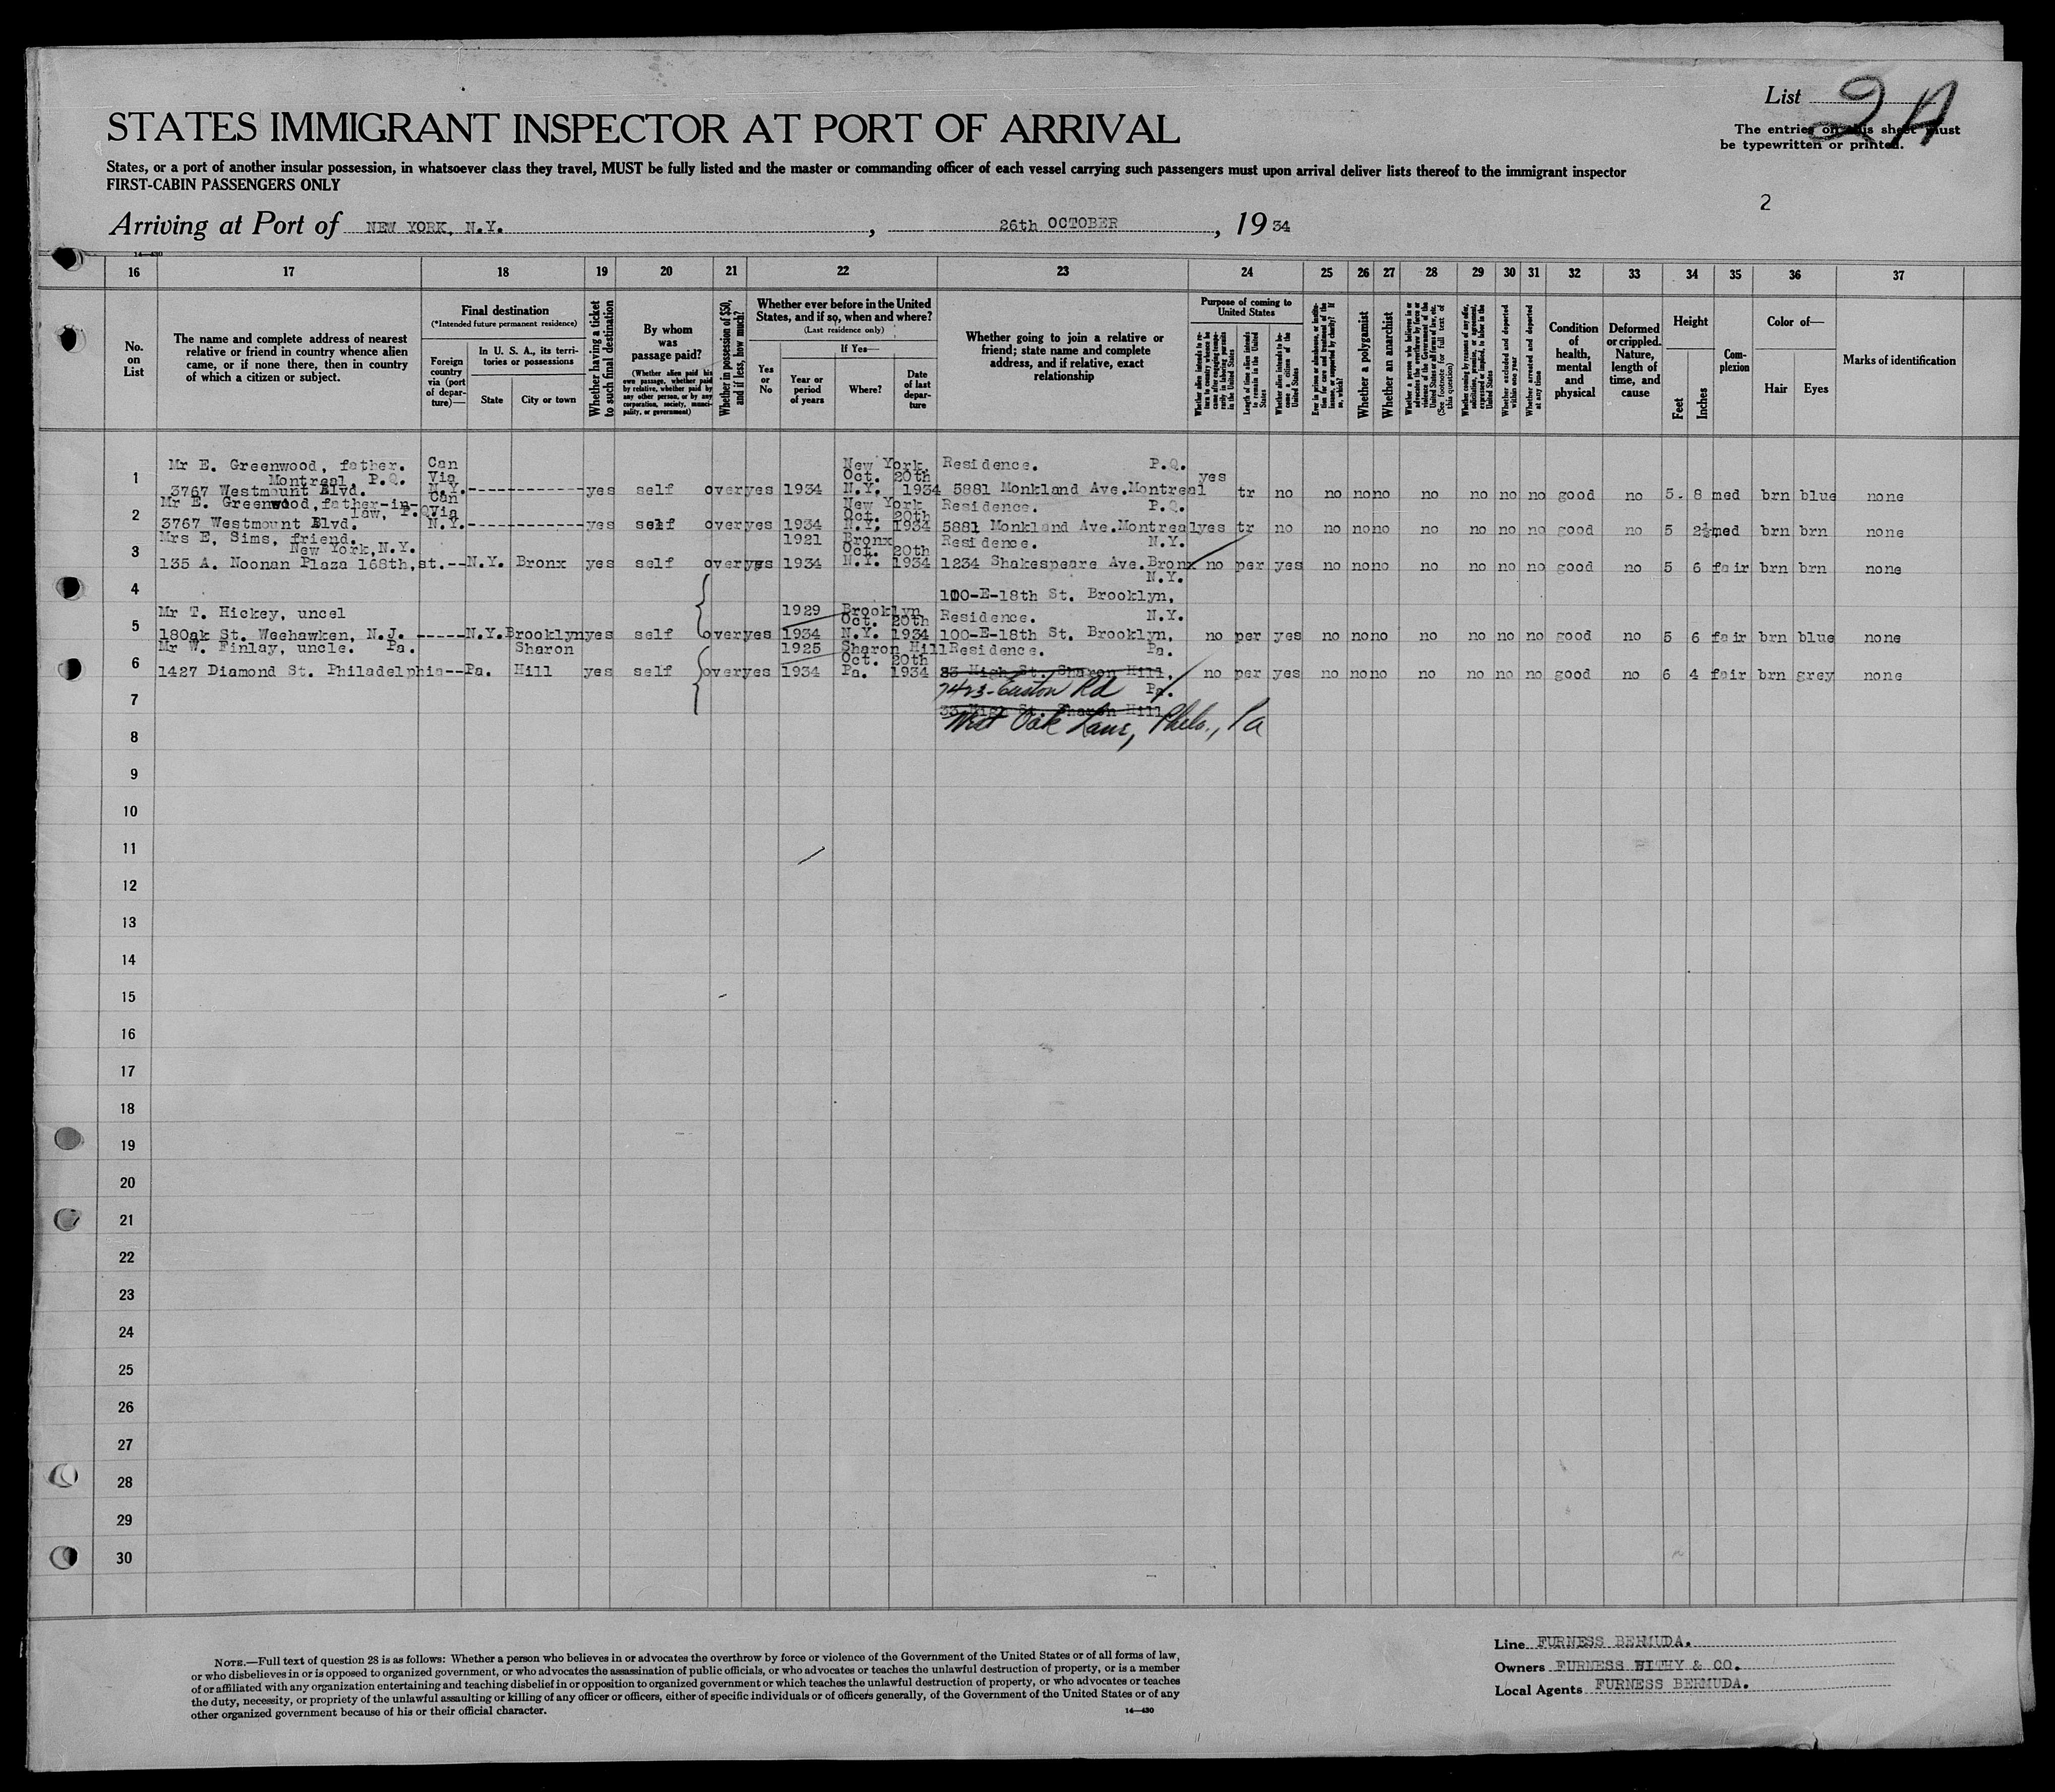 List 2A
STATES IMMIGRANT INSPECTOR AT PORT OF ARRIVAL
The entries on this sheet must
be typewritten or printed.
States, or a port of another insular possession, in whatsoever class they travel, MUST be fully listed and the master or commanding officer of each vessel carrying such passengers must upon arrival deliver lists thereof to the immigrant inspector
FIRST-CABIN PASSENGERS ONLY
2
Arriving at Port of NEW YORK, N.Y. , 26th OCTOBER , 19 34
14—430
16 17 18 19 20 21 22 23 24 25 26 27 28 29 30 31 32 33 34 35 36 37
No. on List
The name and complete address of nearest relative or friend in country whence alien came, or if none there, then in country of which a citizen or subject.
Final destination
(*Intended future permanent residence)
Foreign country via (port of departure)—
In U. S. A., its territories or possessions
State
City or town
Whether having a ticket to such final destination
By whom was passage paid?
(Whether alien paid his own passage, whether paid by relative, whether paid by any other person, or by any corporation, society, municipality, or government)
Whether in possession of $50, and if less, how much?
Whether ever before in the United States, and if so, when and where?
(Last residence only)
Yes or No
If Yes—
Year or period of years
Where?
Date of last departure
Whether going to join a relative or friend; state name and complete address, and if relative, exact relationship
Purpose of coming to United States
Whether alien intends to return to country whence he came after engaging temporarily in laboring pursuits in the United States
Length of time alien intends to remain in the United States
Whether alien intends to become a citizen of the United States
Ever in prison or almshouse, or institution for care and treatment of the insane, or supported by charity? If so, which?
Whether a polygamist
Whether an anarchist
Whether a person who believes in or advocates the overthrow by force or violence of the Government of the United States or all forms of law, etc. (See footnote for full text of this question)
Whether coming by reasons of any offer, solicitation, promise, or agreement, expressed or implied, to labor in the United States
Whether excluded and deported within one year
Whether arrested and deported at any time
Condition of health, mental and physical
Deformed or crippled. Nature, length of time, and cause
Height
Feet
Inches
Complexion
Color of—
Hair
Eyes
Marks of identification
Mr E. Greenwood, father. Can New York. Residence. P.Q.
Montreal, P.Q. Via Oct. 20th yes
1 3767 Westmount Blvd. N.Y. ------------ yes self over yes 1934 N.Y. 1934 5881 Monkland Ave.Montreal tr no no no no no no no no good no 5. 8 med brn blue none
Mr E. Greenwood,father-in- Can New York Residence. P.Q.
law, P.Q Via Oct. 20th
2 3767 Westmount Blvd. N.Y. ------------ yes self over yes 1934 N.Y. 1934 5881 Monkland Ave.Montreal yes tr no no no no no no no no good no 5 2½ med brn brn none
Mrs E. Sims, friend. 1921 Bronx Residence. N.Y.
New York,N.Y. Oct. 20th
3 135 A. Noonan Plaza 168th,st.-- N.Y. Bronx yes self over yes 1934 N.Y. 1934 1234 Shakespeare Ave.Bronx no per yes no no no no no no no good no 5 6 fair brn brn none
N.Y.
4 100-E-18th St. Brooklyn,
Mr T. Hickey, uncel 1929 Brooklyn Residence. N.Y.
Oct. 20th
5 180ak St. Weehawken, N.J. ----- N.Y. Brooklyn yes self over yes 1934 N.Y. 1934 100-E-18th St. Brooklyn, no per yes no no no no no no no good no 5 6 fair brn blue none
Mr W. Finlay, uncle. Pa. Sharon 1925 Sharon Hill Residence. Pa.
Oct. 20th
6 1427 Diamond St. Philadelphia-- Pa. Hill yes self over yes 1934 Pa. 1934 33 High St. Sharon Hill, no per yes no no no no no no no good no 6 4 fair brn grey none
7423-Euston Rd Pa.
7 33 High St. Sharon Hill
West Oak Lane, Phila., Pa
8
9
10
11
12
13
14
15
16
17
18
19
20
21
22
23
24
25
26
27
28
29
30
NOTE.—Full text of question 28 is as follows: Whether a person who believes in or advocates the overthrow by force or violence of the Government of the United States or of all forms of law,
or who disbelieves in or is opposed to organized government, or who advocates the assassination of public officials, or who advocates or teaches the unlawful destruction of property, or is a member
of or affiliated with any organization entertaining and teaching disbelief in or opposition to organized government or which teaches the unlawful destruction of property, or who advocates or teaches
the duty, necessity, or propriety of the unlawful assaulting or killing of any officer or officers, either of specific individuals or of officers generally, of the Government of the United States or of any
other organized government because of his or their official character.
14—430
Line FURNESS BERMUDA.
Owners FURNESS WITHY & CO.
Local Agents FURNESS BERMUDA.